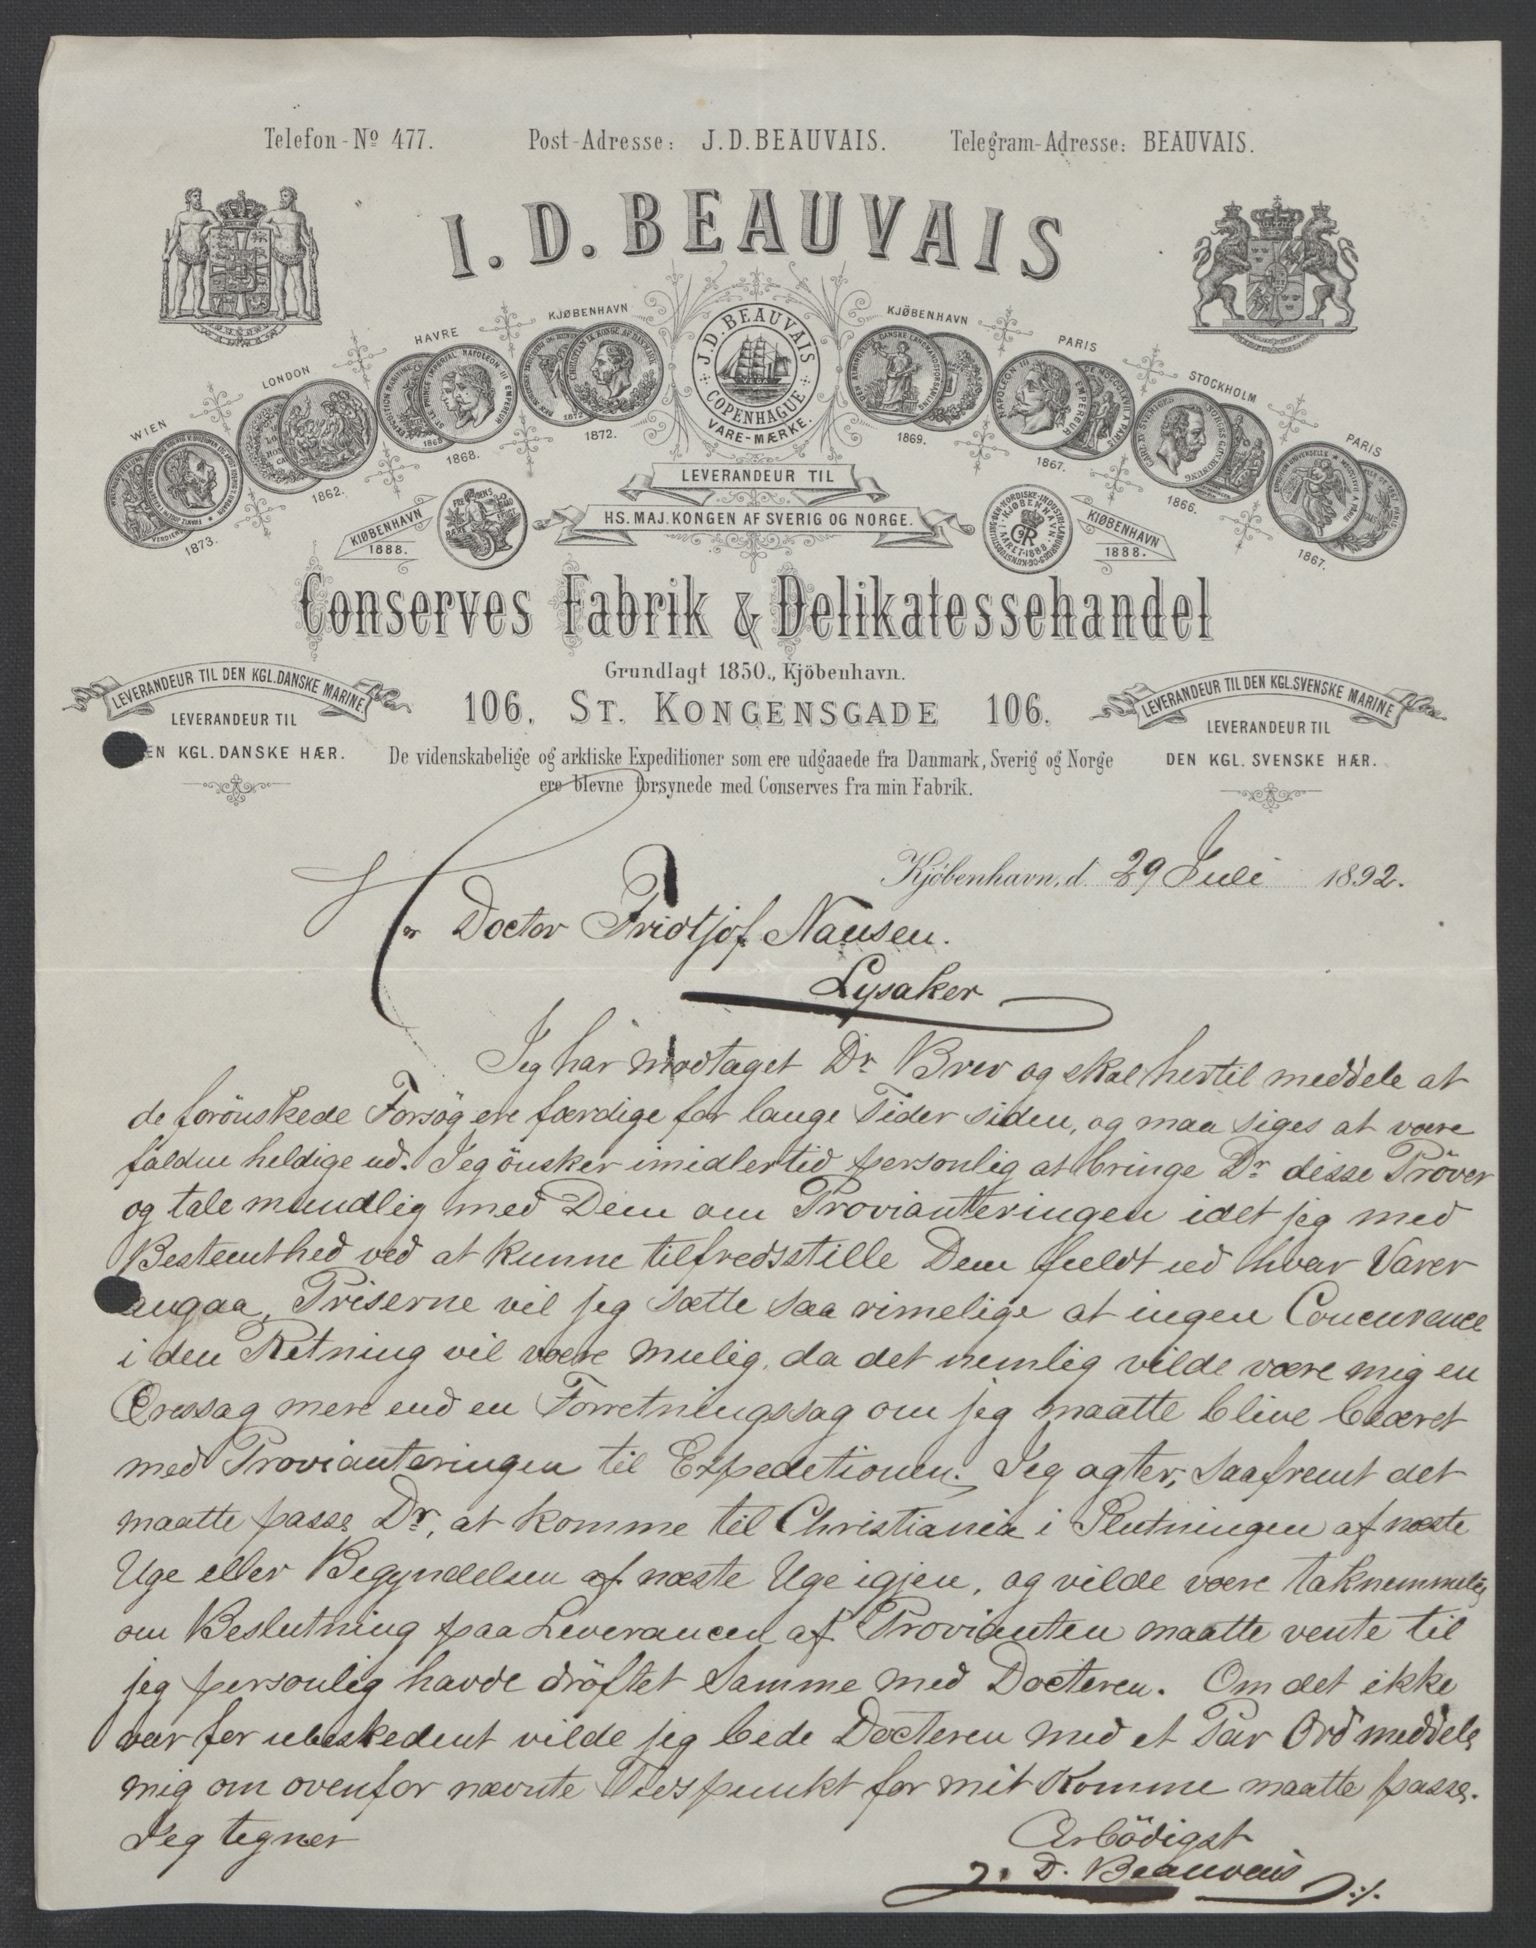 Telefon-No 477. Post-Adresse: J.D.BEAUVAIS. Telegram-Adresse: BEAUVAIS.
I.D.BEAUVAIS
J.D.BEAUVAIS
COPENHAGUE
VARE-MÆRKE.
WIEN
1873.
LONDON
1862.
HAVRE
1868.
KJØBENHAVN
1872.
KJØBENHAVN
1869.
PARIS
1867.
STOCKHOLM
1866.
PARIS
1867.
KIØBENHAVN
1888.
KIØBENHAVN
1888.
LEVERANDEUR TIL
HS. MAJ. KONGEN AF SVERIG OG NORGE.
Conserves Fabrik & Delikatessehandel
Grundlagt 1850., Kjöbenhavn.
106. ST. KONGENSGADE 106.
LEVERANDEUR TIL DEN KGL. DANSKE MARINE.
LEVERANDEUR TIL
EN KGL. DANSKE HÆR.
LEVERANDEUR TIL DEN KGL. SVENSKE MARINE
LEVERANDEUR TIL
DEN KGL. SVENSKE HÆR.
De videnskabelige og arktiske Expeditioner som ere udgaaede fra Danmark, Sverig og Norge
ere blevne forsynede med Conserves fra min Fabrik.
Kjöbenhavn, d. 29 Juli 1892.
Hr Doctor Fridtjof Nansen.
Lysaker
Jeg har modtaget Dr Brev og skal hertil meddele at
de forönskede Forsög ere færdige for lange Tider siden, og maa siges at være
faldne heldige ud. Jeg önsker imidlertid personlig at bringe Dr disse Pröver
og tale mundlig med Dem om Provianteringen idet jeg med
Bestemthed ved at kunne tilfredsstille Dem fuldt ud hvor Varer
angaa, Priserne vil jeg sætte saa rimelige at ingen Concurence
i den Retning vil være mulig, da det nemlig vilde være mig en
Æressag mere end en Forretningssag om jeg maatte blive beæret
med Provianteringen til Expeditionen. Jeg agter, saafremt det
maatte passe Dr, at komme til Christiania i Slutningen af næste
Uge eller Begyndelsen af næste Uge igjen, og vilde være taknemmelig
om Beslutning paa Leverancen af Provianten maatte vente til
jeg personlig havde dröftet Samme med Doctoren. Om det ikke
var for ubeskedent vilde jeg bede Doctoren med et Par Ord meddele
mig om ovenfor nævnte Tidspunkt for mit Komme maatte passe.
Jeg tegner
Ærbödigst
J. D. Beauvais